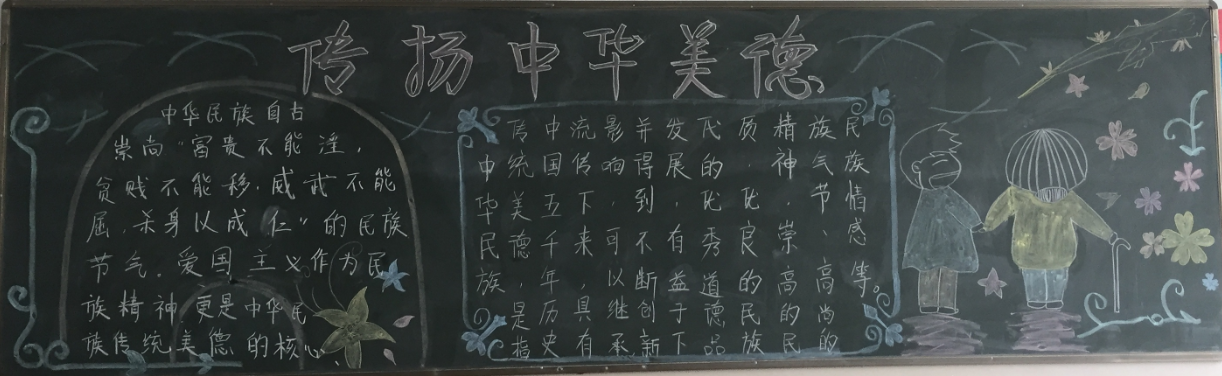 传扬中华美德
中华民族自古
崇尚“富贵不能淫，
贫贱不能移，威武不能
屈，杀身以成仁”的民族
节气。爱国主义作为民
族精神更是中华民
族传统美德的核心
中华民族，
传统美德，是指
中国五千年历史
流传下来，具有
影响可以继承
并得到不断创新
发展，有益于下
代的优秀道德品
质、优良的民族
精神、崇高的民
族气节、高尚的
民族情感等。